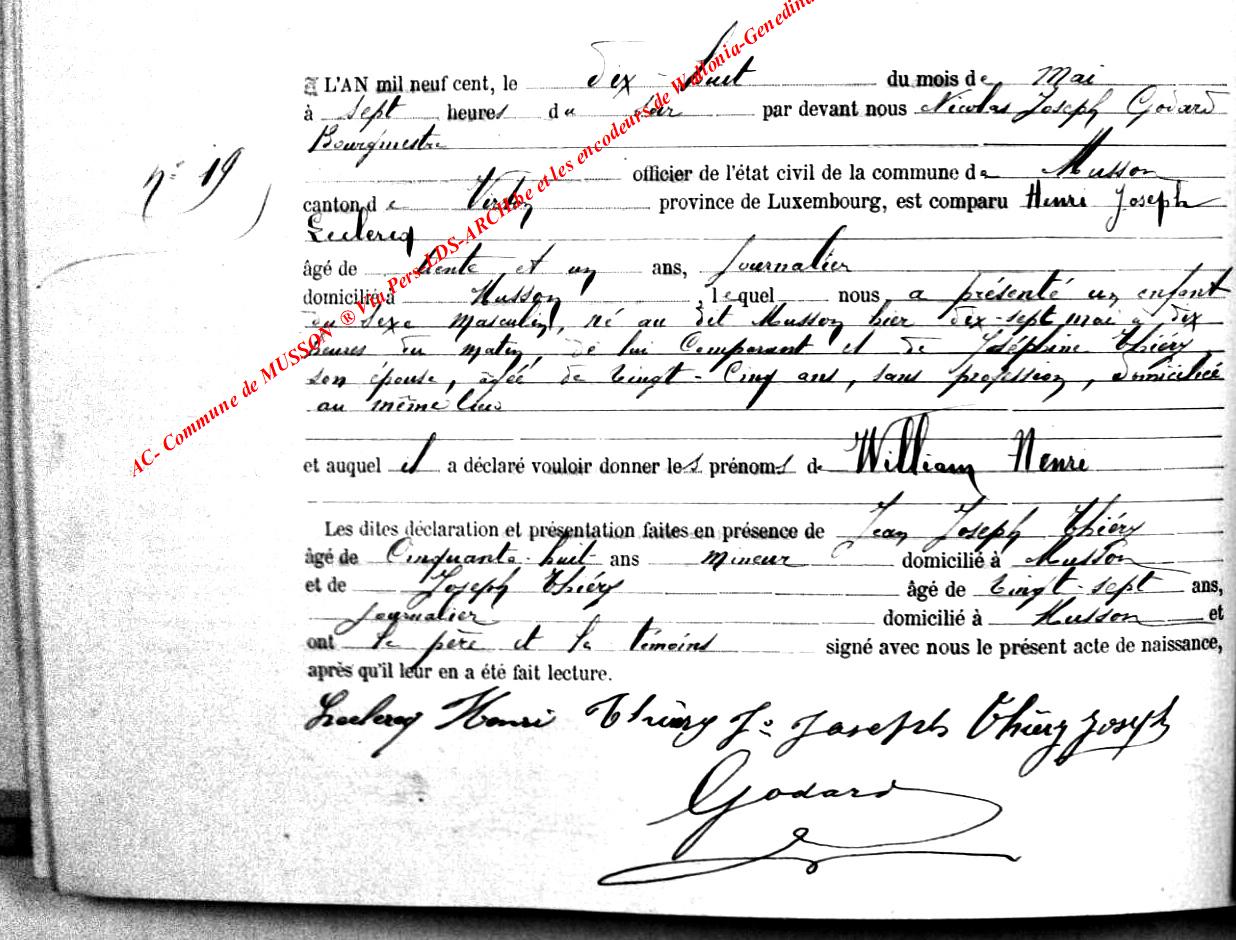 L'AN mil neuf cent, le dix-huit du mois de Mai
à sept heures du soir par devant nous Nicolas Joseph Godard
Bourgmestre
officier de l'état civil de la commune de Musson
n° 19
canton de Virton province de Luxembourg, est comparu Henri Joseph
Leclercq
âgé de trente et un ans, journalier
domicilié à Musson, lequel nous a présenté un enfant
du sexe masculin, né au dit Musson hier dix-sept mai à dix
heures du matin, de lui Comparant et de Joséphine Thiéry,
son épouse, âgée de vingt-cinq ans, sans profession, domiciliée
au même lieu
et auquel il a déclaré vouloir donner les prénoms de William Henri
Les dites déclaration et présentation faites en présence de Jean Joseph Thiéry
âgé de Cinquante-huit ans mineur domicilié à Musson
et de Joseph Thiéry âgé de vingt-sept ans,
journalier domicilié à Musson et
ont le père et les témoins signé avec nous le présent acte de naissance,
après qu'il leur en a été fait lecture.
Leclercq Henri Thiery Jn Joseph Thiery Joseph
Godard
AC- Commune de MUSSON ® Via Pers LDS-ARCHbe et les encodeurs de Wallonia-Genedina